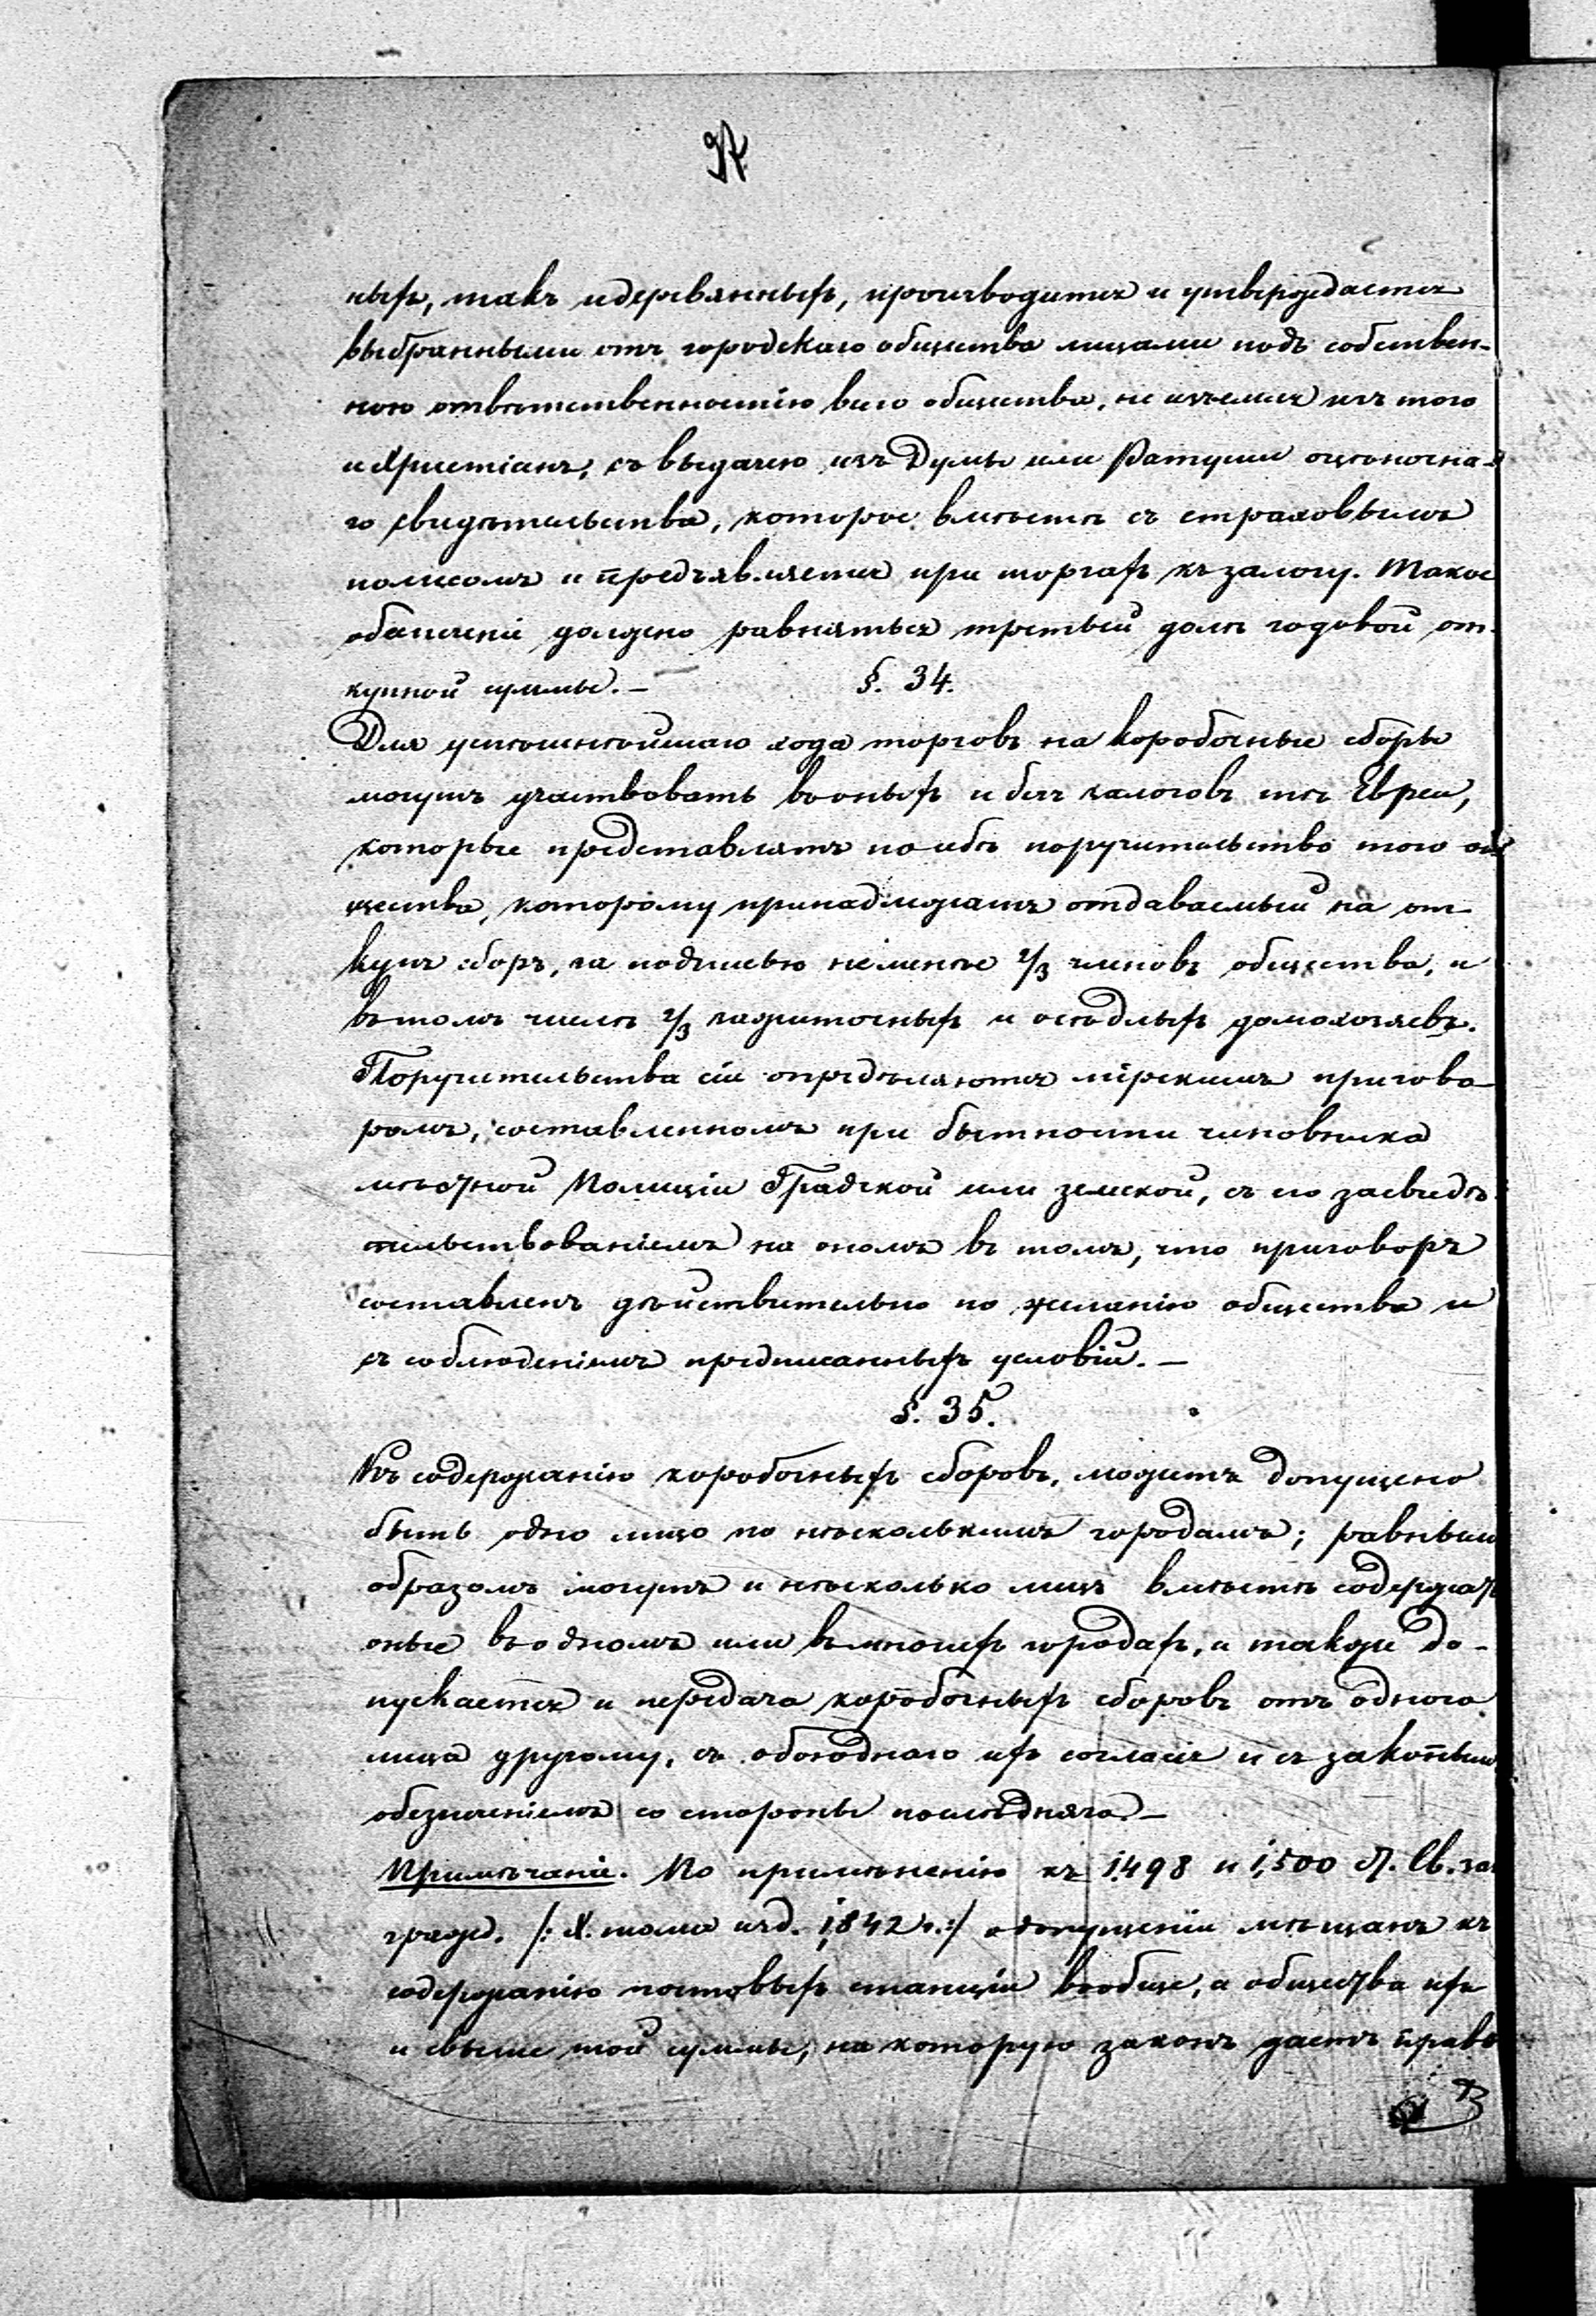 ныхъ, такъ и деревянныхъ, производится и утверждается
выбранными отъ городскаго общества лицами подъ собствен-
ною отвѣтственностію всего общества, не изъемля изъ того
и Христіанъ, съ выдачею изъ Думы или Ратуши оцѣночна-
го свидѣтельства, которое вмѣстѣ съ страховымъ
полисомъ и предъявляется при торгахъ къ залогу. Такое
обезпеченіе должно равняться третьей долѣ годовой от-
купной суммы. —
§. 34.
Для успѣшнѣйшаго хода торговъ на коробочные сборы
могутъ участвовать въ оныхъ и безъ залоговъ тѣ Евреи,
которые представлятъ по себѣ поручительство того об
щества, которому принадлежатъ отдаваемый на от-
купъ сборъ, за подписью не менѣе 2/3 членовъ общества, и
въ томъ числѣ 2/3 зажиточныхъ и осѣдлыхъ домохозяевъ.
Поручительства сіи опредѣляются мірскимъ пригово-
ромъ, составленномъ при бытности чиновника
мѣстной Полиціи Градской или земской, съ его засвидѣ-
тельствованіемъ на ономъ въ томъ, что приговоръ
составленъ дѣйствительно по желанію общества и
съ соблюденіемъ предписанныхъ условій. —
§. 35.
Къ содержанію коробочныхъ сборовъ, можетъ допущено
быть одно лицо по нѣсколькимъ городамъ; равнымъ
образомъ могутъ и нѣсколько лицъ вмѣстѣ содержать
оные въ одномъ или въ многихъ городахъ, и также до-
пускается и передача коробочныхъ сборовъ отъ одного
лица другому, съ обоюднаго ихъ согласія и съ законнымъ
обезпеченіемъ со стороны послѣдняго. —
Примѣчаніе. По примѣненію къ 1498 и 1,500 ст. Св. зак
гражд. /: X. тома изд. 1,842 г. :/ о допущеніи мѣщанъ къ
содержанію почтовыхъ станцій вообще, а общества ихъ
и свыше той суммы, на которую законъ даетъ право